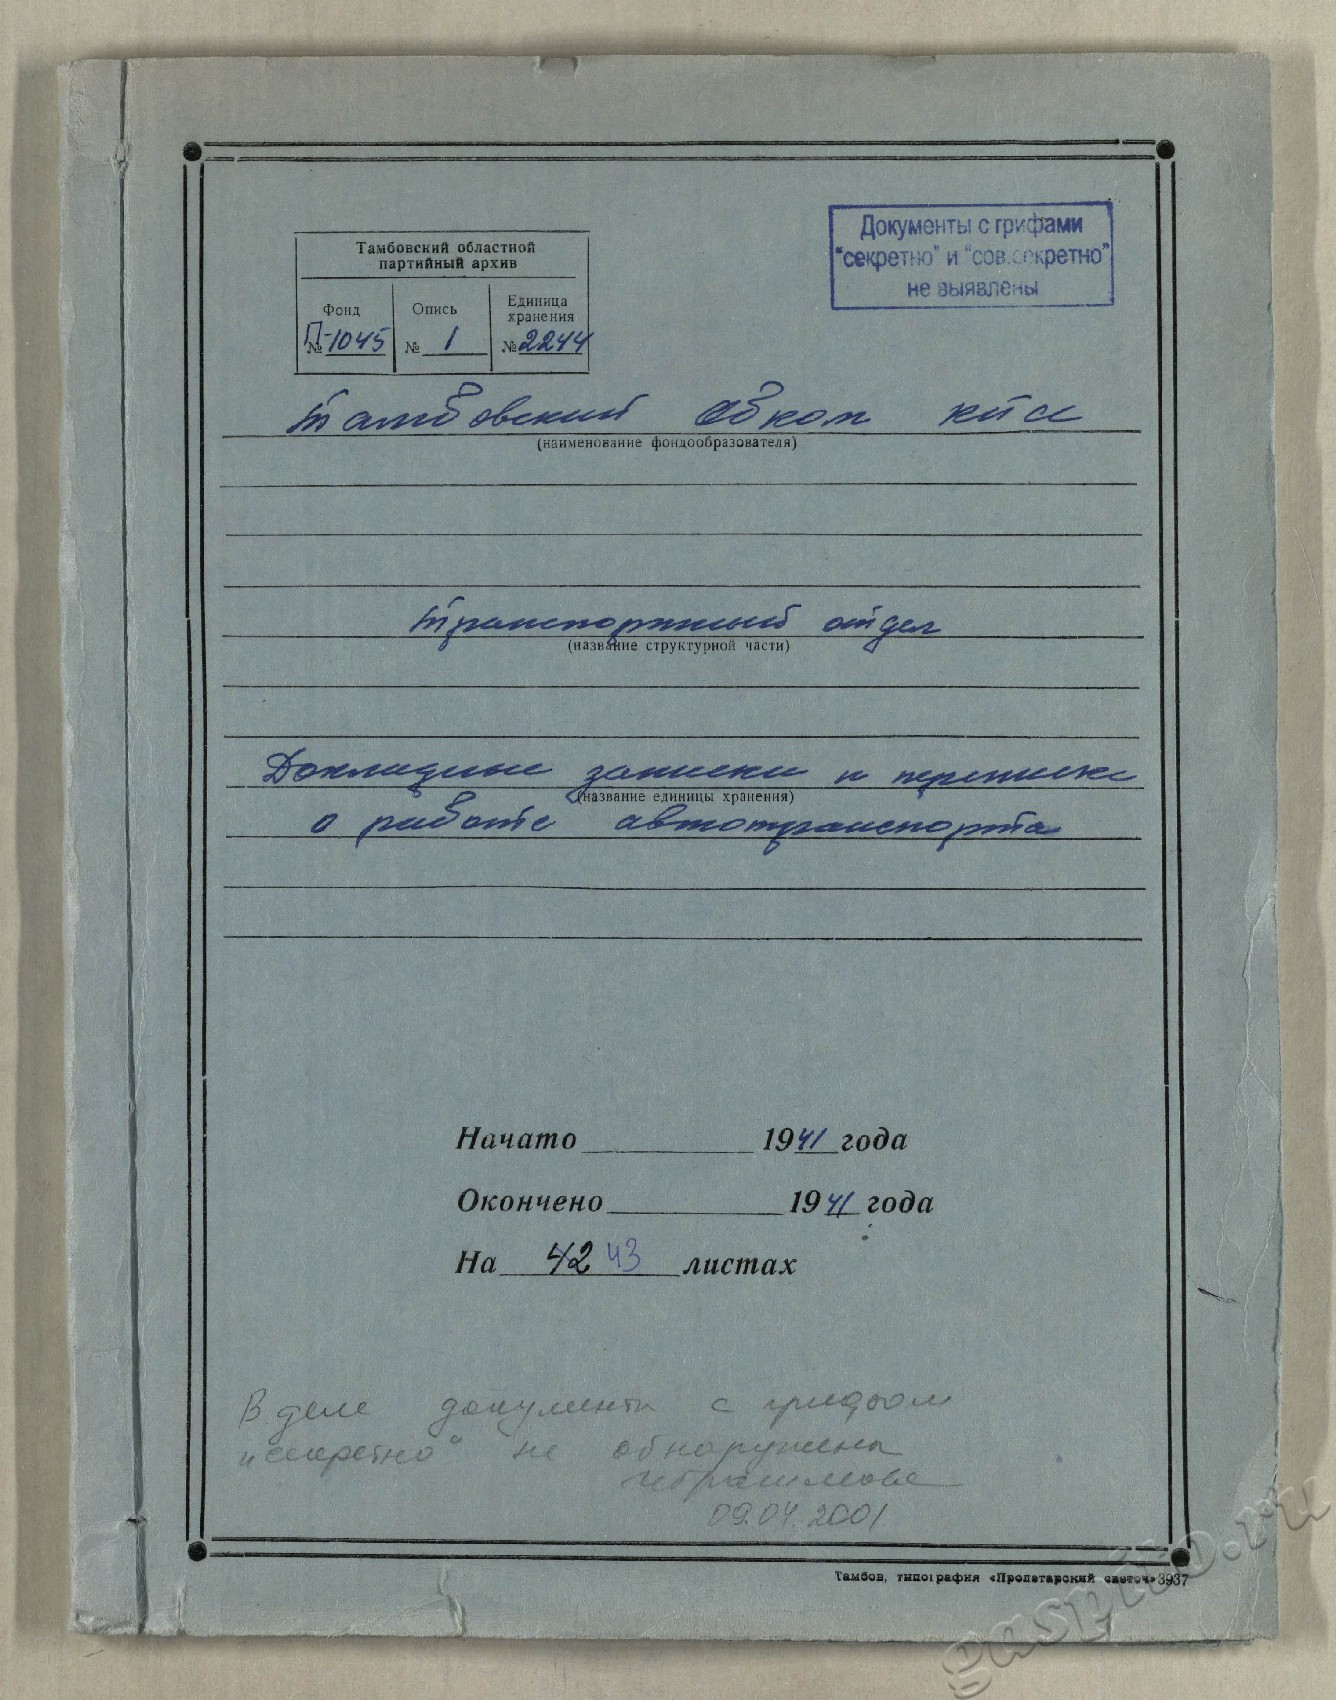 Тамбовский областной
партийный архив
Фонд
№ П-1045
Опись
№ 1
Единица
хранения
№ 2244
Документы с грифами
"секретно" и "сов.секретно"
не выявлены
Тамбовский Обком КПСС
(наименование фондообразователя)
Транспортный отдел
(название структурной части)
Докладные записки и переписка
(название единицы хранения)
о работе автотранспорта
Начато 1941 года
Окончено 1941 года
На 42 43 листах
В деле документы с грифом
"секретно" не обнаружены
09.04.2001
Тамбов, типография «Пролетарский светоч» 3937
gaspito.ru